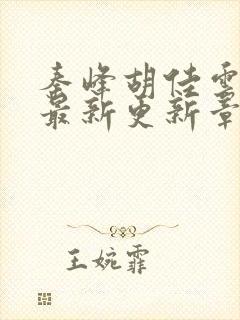 秦峰胡佳雲
最新更新章
王婉霏